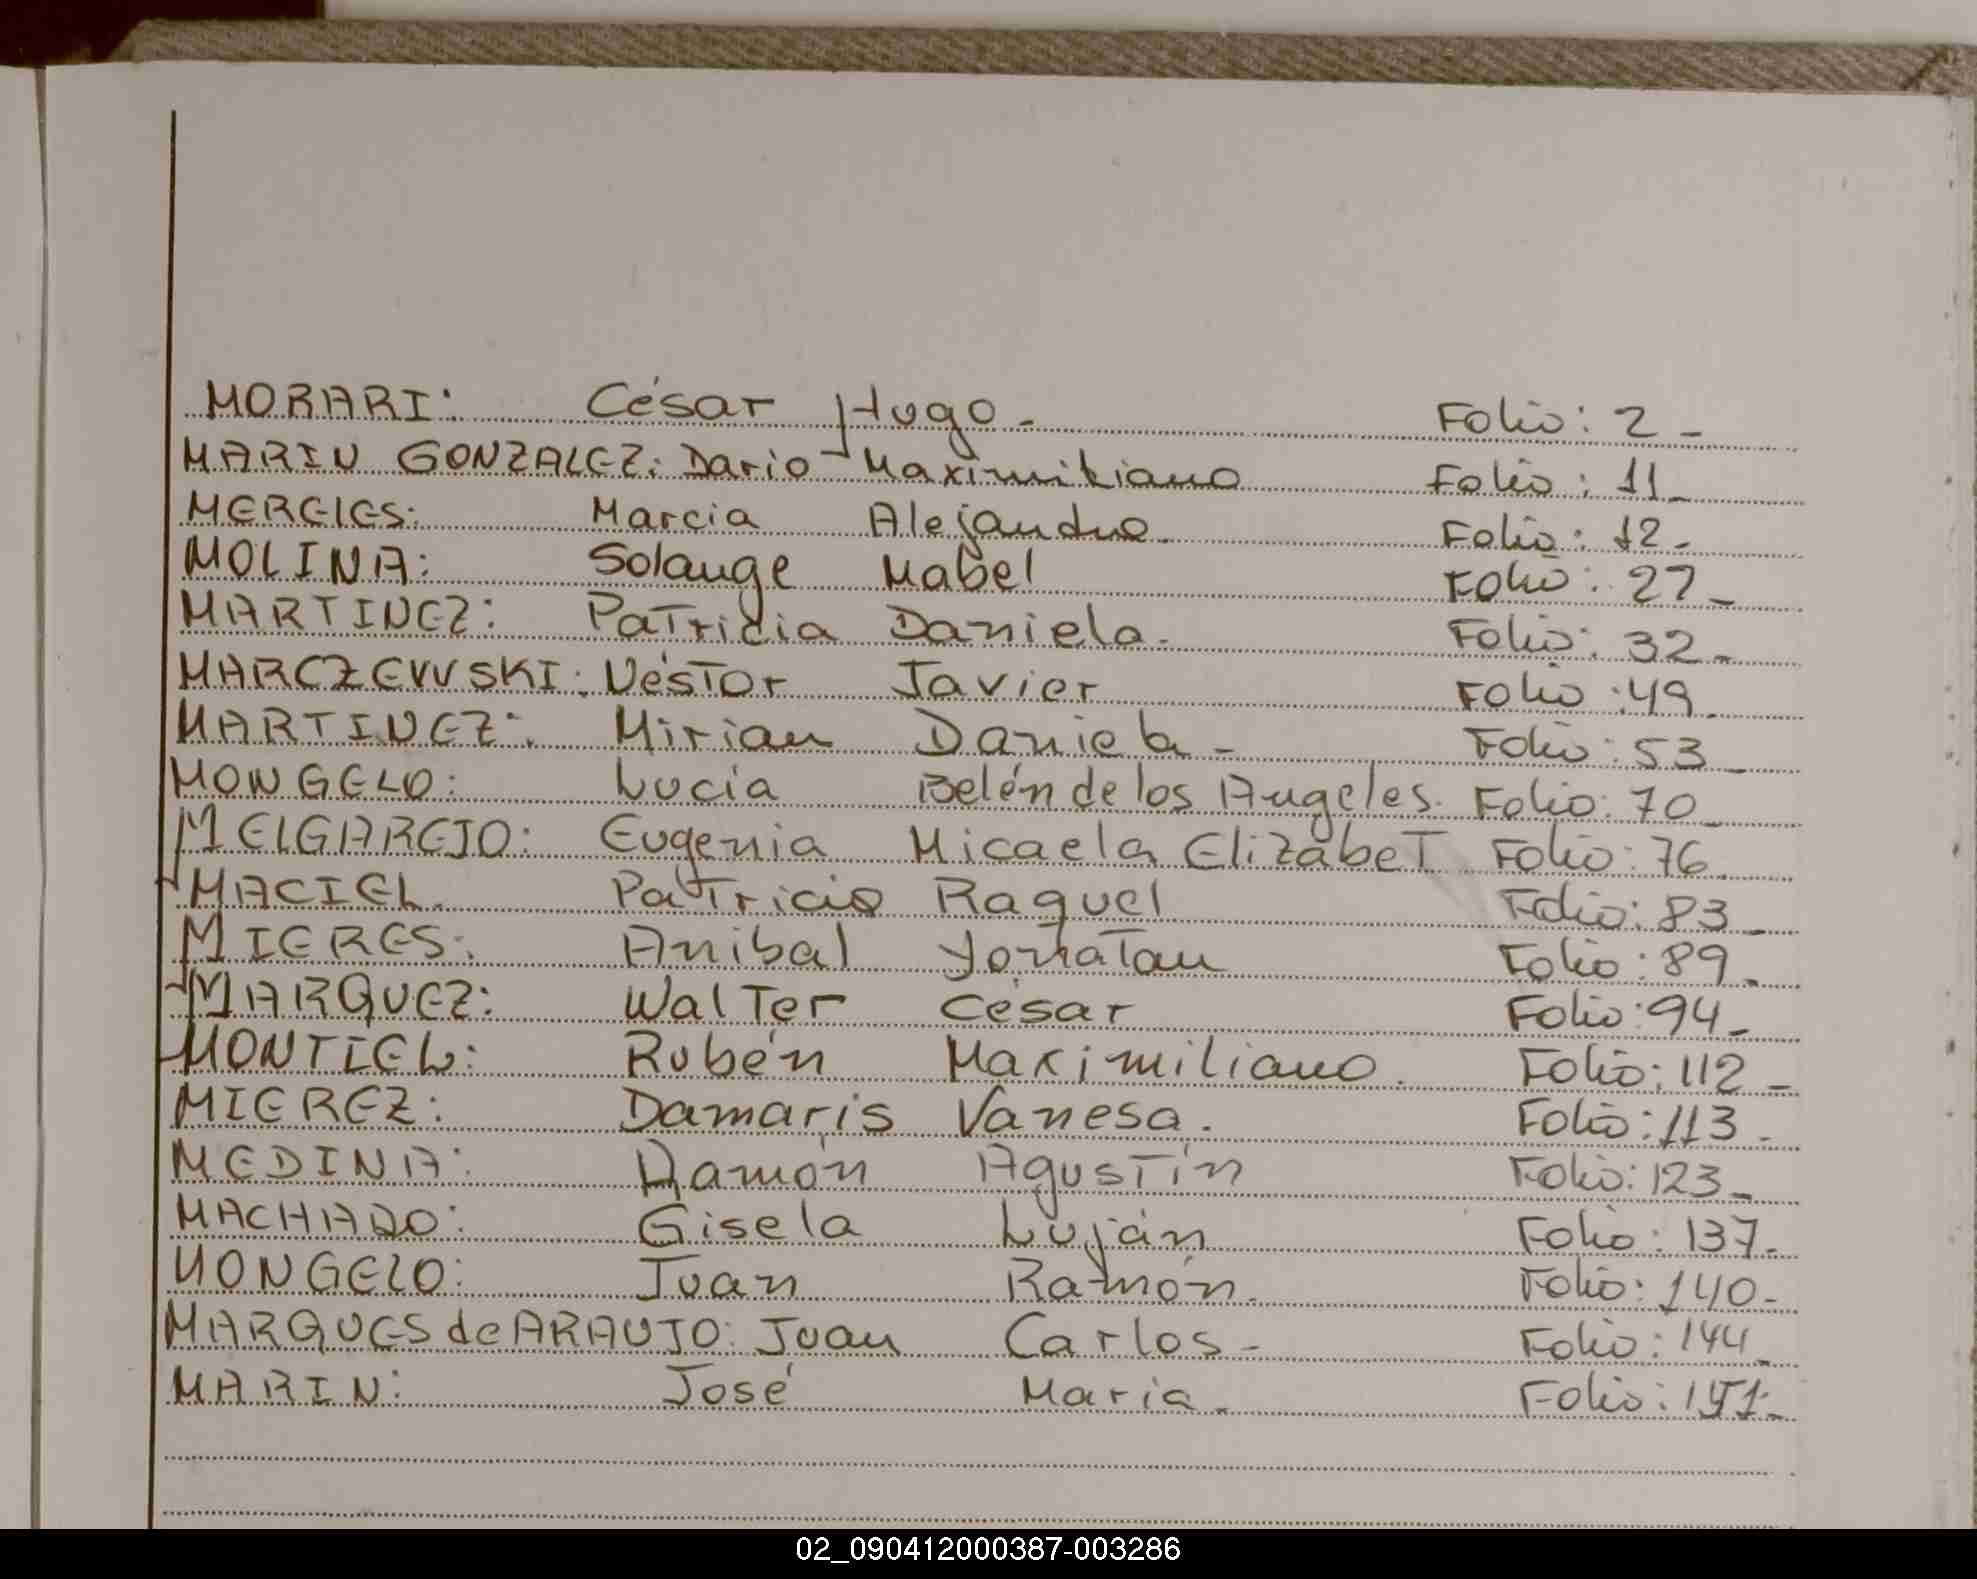 MORARI: César Hugo- Folio: 2-
MARIN GONZALEZ: Dario Maximiliano Folio: 11-
MERELES: Marcia Alejandra. Folio: 12-
MOLINA: Solange Mabel Folio: 27-
MARTINEZ: Patricia Daniela. Folio: 32-
MARCZEWSKI: Néstor Javier Folio: 49-
MARTINEZ: Mirian Daniela- Folio: 53-
MONGELO: Lucía Belén de los Angeles. Folio: 70-
MELGAREJO: Eugenia Micaela Elizabet Folio: 76-
MACIEL. Patricia Raquel Folio: 83-
MIERES: Anibal Yonatan Folio: 89-
MARQUEZ: Walter César Folio: 94-
MONTIEL: Rubén Maximiliano. Folio: 112-
MIEREZ: Damaris Vanesa. Folio: 113-
MEDINA: Ramón Agustín Folio: 123-
MACHADO: Gisela Luján Folio: 137-
MONGELO: Juan Ramón. Folio: 140-
MARQUES de ARAUJO: Juan Carlos- Folio: 144-
MARIN: José María- Folio:
02_090412000387-003286